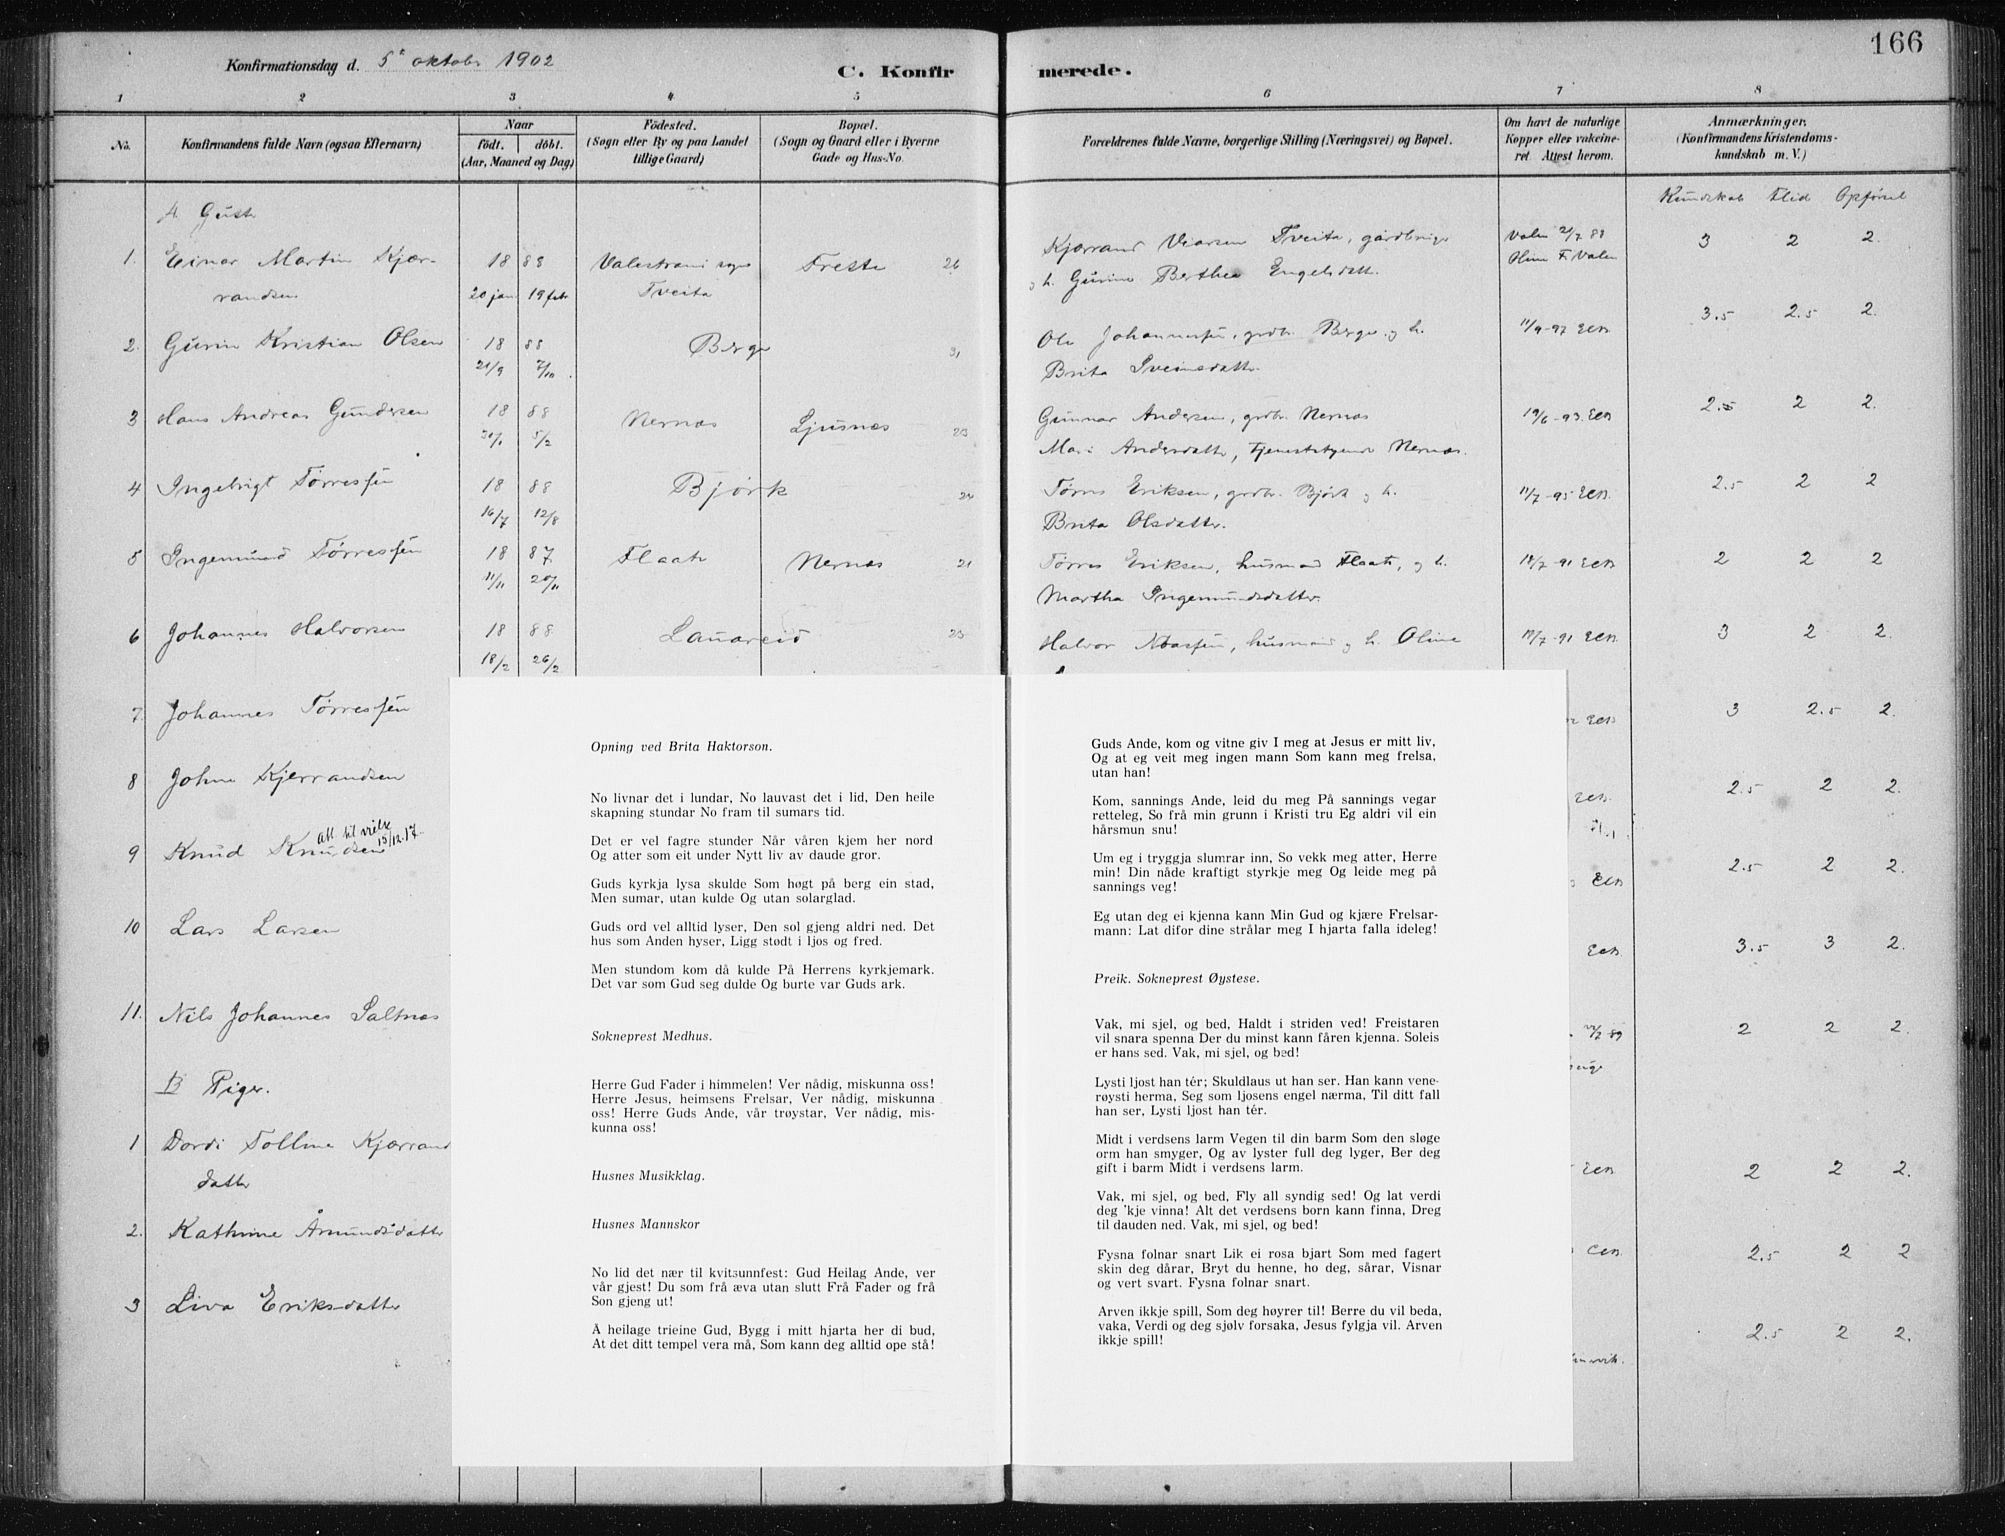 166
Konfirmationsdag d. 5te oktober 1902
C. Konfirmerede.
1 2 3 4 5 6 7 8
No. Konfirmandens fulde Navn (ogsaa Efternavn)
Naar
födt. döbt.
(Aar, Maaned og Dag)
Födested.
(Sogn eller By og paa Landet
tillige Gaard)
Bopæl.
(Sogn og Gaard eller i Byerne
Gade og Hus-No.
Forældrenes fulde Navne, borgerlige Stilling (Næringsvei) og Bopæl.
Om havt de naturlige
Kopper eller vakcine-
ret Attest herom.
Anmærkninger.
(Konfirmandens Kristendoms-
kundskab m. V.)
Kundskab Flid Opførsel
A Gutter
1. Einar Martin Kjær- 18 88 Valestrand sogn Freste 26 Kjærrand Tveita, gårdbruger Valen 2/7 88 3 2 2.
randsen 20 jan 19 febr Tveita og h. Gurine Berthea Engelsdatt. F. Valen
2. Gurin Kristian Olsen 18 88 Berge 31 Ole Johannessen, grdbr. Berge og h. 11/9-97 3.5 2.5 2.
21/9 7/10 Brita Sveinsdatter
3 Hans Andreas Gundersen 18 88 Nernæs Ljusnæs 23 Gunnar Andersen, grdbr. Nernæs 19/6-93 2.5 2 2.
30/1 5/2 Mari Andersdatter, Nernæs.
4 Ingebrigt Tørressen 18 88 Bjørk 24 Tørres Eriksen, grdbr. Bjørk og h. 11/7-95 2.5 2 2
16/7 12/8 Brita Olsdatter.
5 Ingemund Tørressen 18 87 Flaate Nernæs 21 Tørres Eriksen, husmand Flaate, og h. 2 2 2
11/11 20/11 Martha Ingemundsdatter.
6 Johannes Halvorsen 18 88 Lauareid 23 Halvor husmand og h. Oline 3 2 2.
18/2 26/2
7. Johannes Tørressen 3 2.5 2.
8 Johne Kjerrandsen 2.5 2 2.
att. til vielse
15/12.17.
9 Knud Knudsen 2.5 2 2.
10 Lars Larsen 3.5 3 2.
11. Nils Johannes Saltnæs 2 2 2.
B Piger.
1 Dordi Tolline Kjærrands 2 2 2.
datter
2. Kathrine Åmundsdatter 2.5 2 2
3 Liva Eriksdatter 2.5 2 2.
Opning ved Brita Haktorson.
No livnar det i lundar, No lauvast det i lid, Den heile
skapning stundar No fram til sumars tid.
Det er vel fagre stunder Når våren kjem her nord
Og atter som eit under Nytt liv av daude gror.
Guds kyrkja lysa skulde Som høgt på berg ein stad,
Men sumar, utan kulde Og utan solarglad.
Guds ord vel alltid lyser, Den sol gjeng aldri ned. Det
hus som Anden hyser, Ligg stødt i ljos og fred.
Men stundom kom då kulde På Herrens kyrkjemark.
Det var som Gud seg dulde Og burte var Guds ark.
Sokneprest Medhus.
Herre Gud Fader i himmelen! Ver nådig, miskunna oss!
Herre Jesus, heimsens Frelsar, Ver nådig, miskunna
oss! Herre Guds Ande, vår trøystar, Ver nådig, mis-
kunna oss!
Husnes Musikklag.
Husnes Mannskor
No lid det nær til kvitsunnfest: Gud Heilag Ande, ver
vår gjest! Du som frå æva utan slutt Frå Fader og frå
Son gjeng ut!
Å heilage trieine Gud, Bygg i mitt hjarta her di bud,
At det ditt tempel vera må, Som kann deg alltid ope stå!
Guds Ande, kom og vitne giv I meg at Jesus er mitt liv,
Og at eg veit meg ingen mann Som kann meg frelsa,
utan han!
Kom, sannings Ande, leid du meg På sannings vegar
retteleg, So frå min grunn i Kristi tru Eg aldri vil ein
hårsmun snu!
Um eg i tryggja slumrar inn, So vekk meg atter, Herre
min! Din nåde kraftigt styrkje meg Og leide meg på
sannings veg!
Eg utan deg ei kjenna kann Min Gud og kjære Frelsar-
mann: Lat difor dine strålar meg I hjarta falla ideleg!
Preik. Sokneprest Øystese.
Vak, mi sjel, og bed, Haldt i striden ved! Freistaren
vil snara spenna Der du minst kann fåren kjenna. Soleis
er hans sed. Vak, mi sjel, og bed!
Lysti ljost han tér; Skuldlaus ut han ser. Han kann vene-
røysti herma, Seg som ljosens engel nærma, Til ditt fall
han ser, Lysti ljost han tér.
Midt i verdsens larm Vegen til din barm Som den sløge
orm han smyger, Og av lyster full deg lyger, Ber deg
gift i barm Midt i verdsens larm.
Vak, mi sjel, og bed, Fly all syndig sed! Og lat verdi
deg 'kje vinna! Alt det verdsens born kann finna, Dreg
til dauden ned. Vak, mi sjel, og bed!
Fysna folnar snart Lik ei rosa bjart Som med fagert
skin deg dårar, Bryt du henne, ho deg, sårar, Visnar
og vert svart. Fysna folnar snart.
Arven ikkje spill, Som deg høyrer til! Berre du vil beda,
vaka, Verdi og deg sjølv forsaka, Jesus fylgja vil. Arven
ikkje spill!